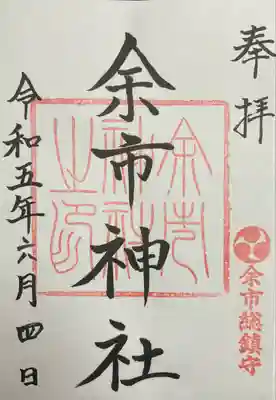 奉拝
余市神社
余市神社之印
余市総鎮守
令和五年六月四日